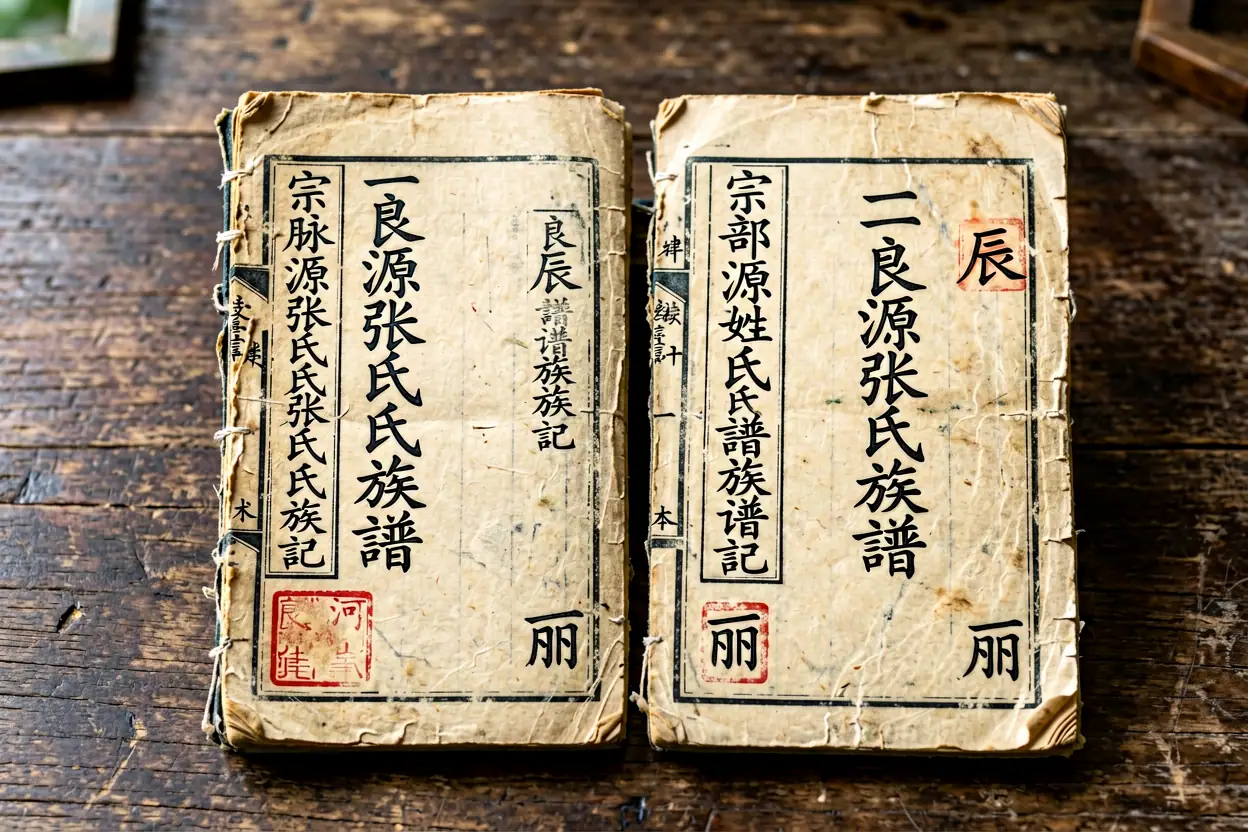 良辰譜谱族族記
丽
一良源张氏氏族譜
宗脉源张氏氏张氏氏族記
河
良
术
辰
丽
二良源张氏族譜
宗部源姓氏氏譜族谱記
丽
十
一
本